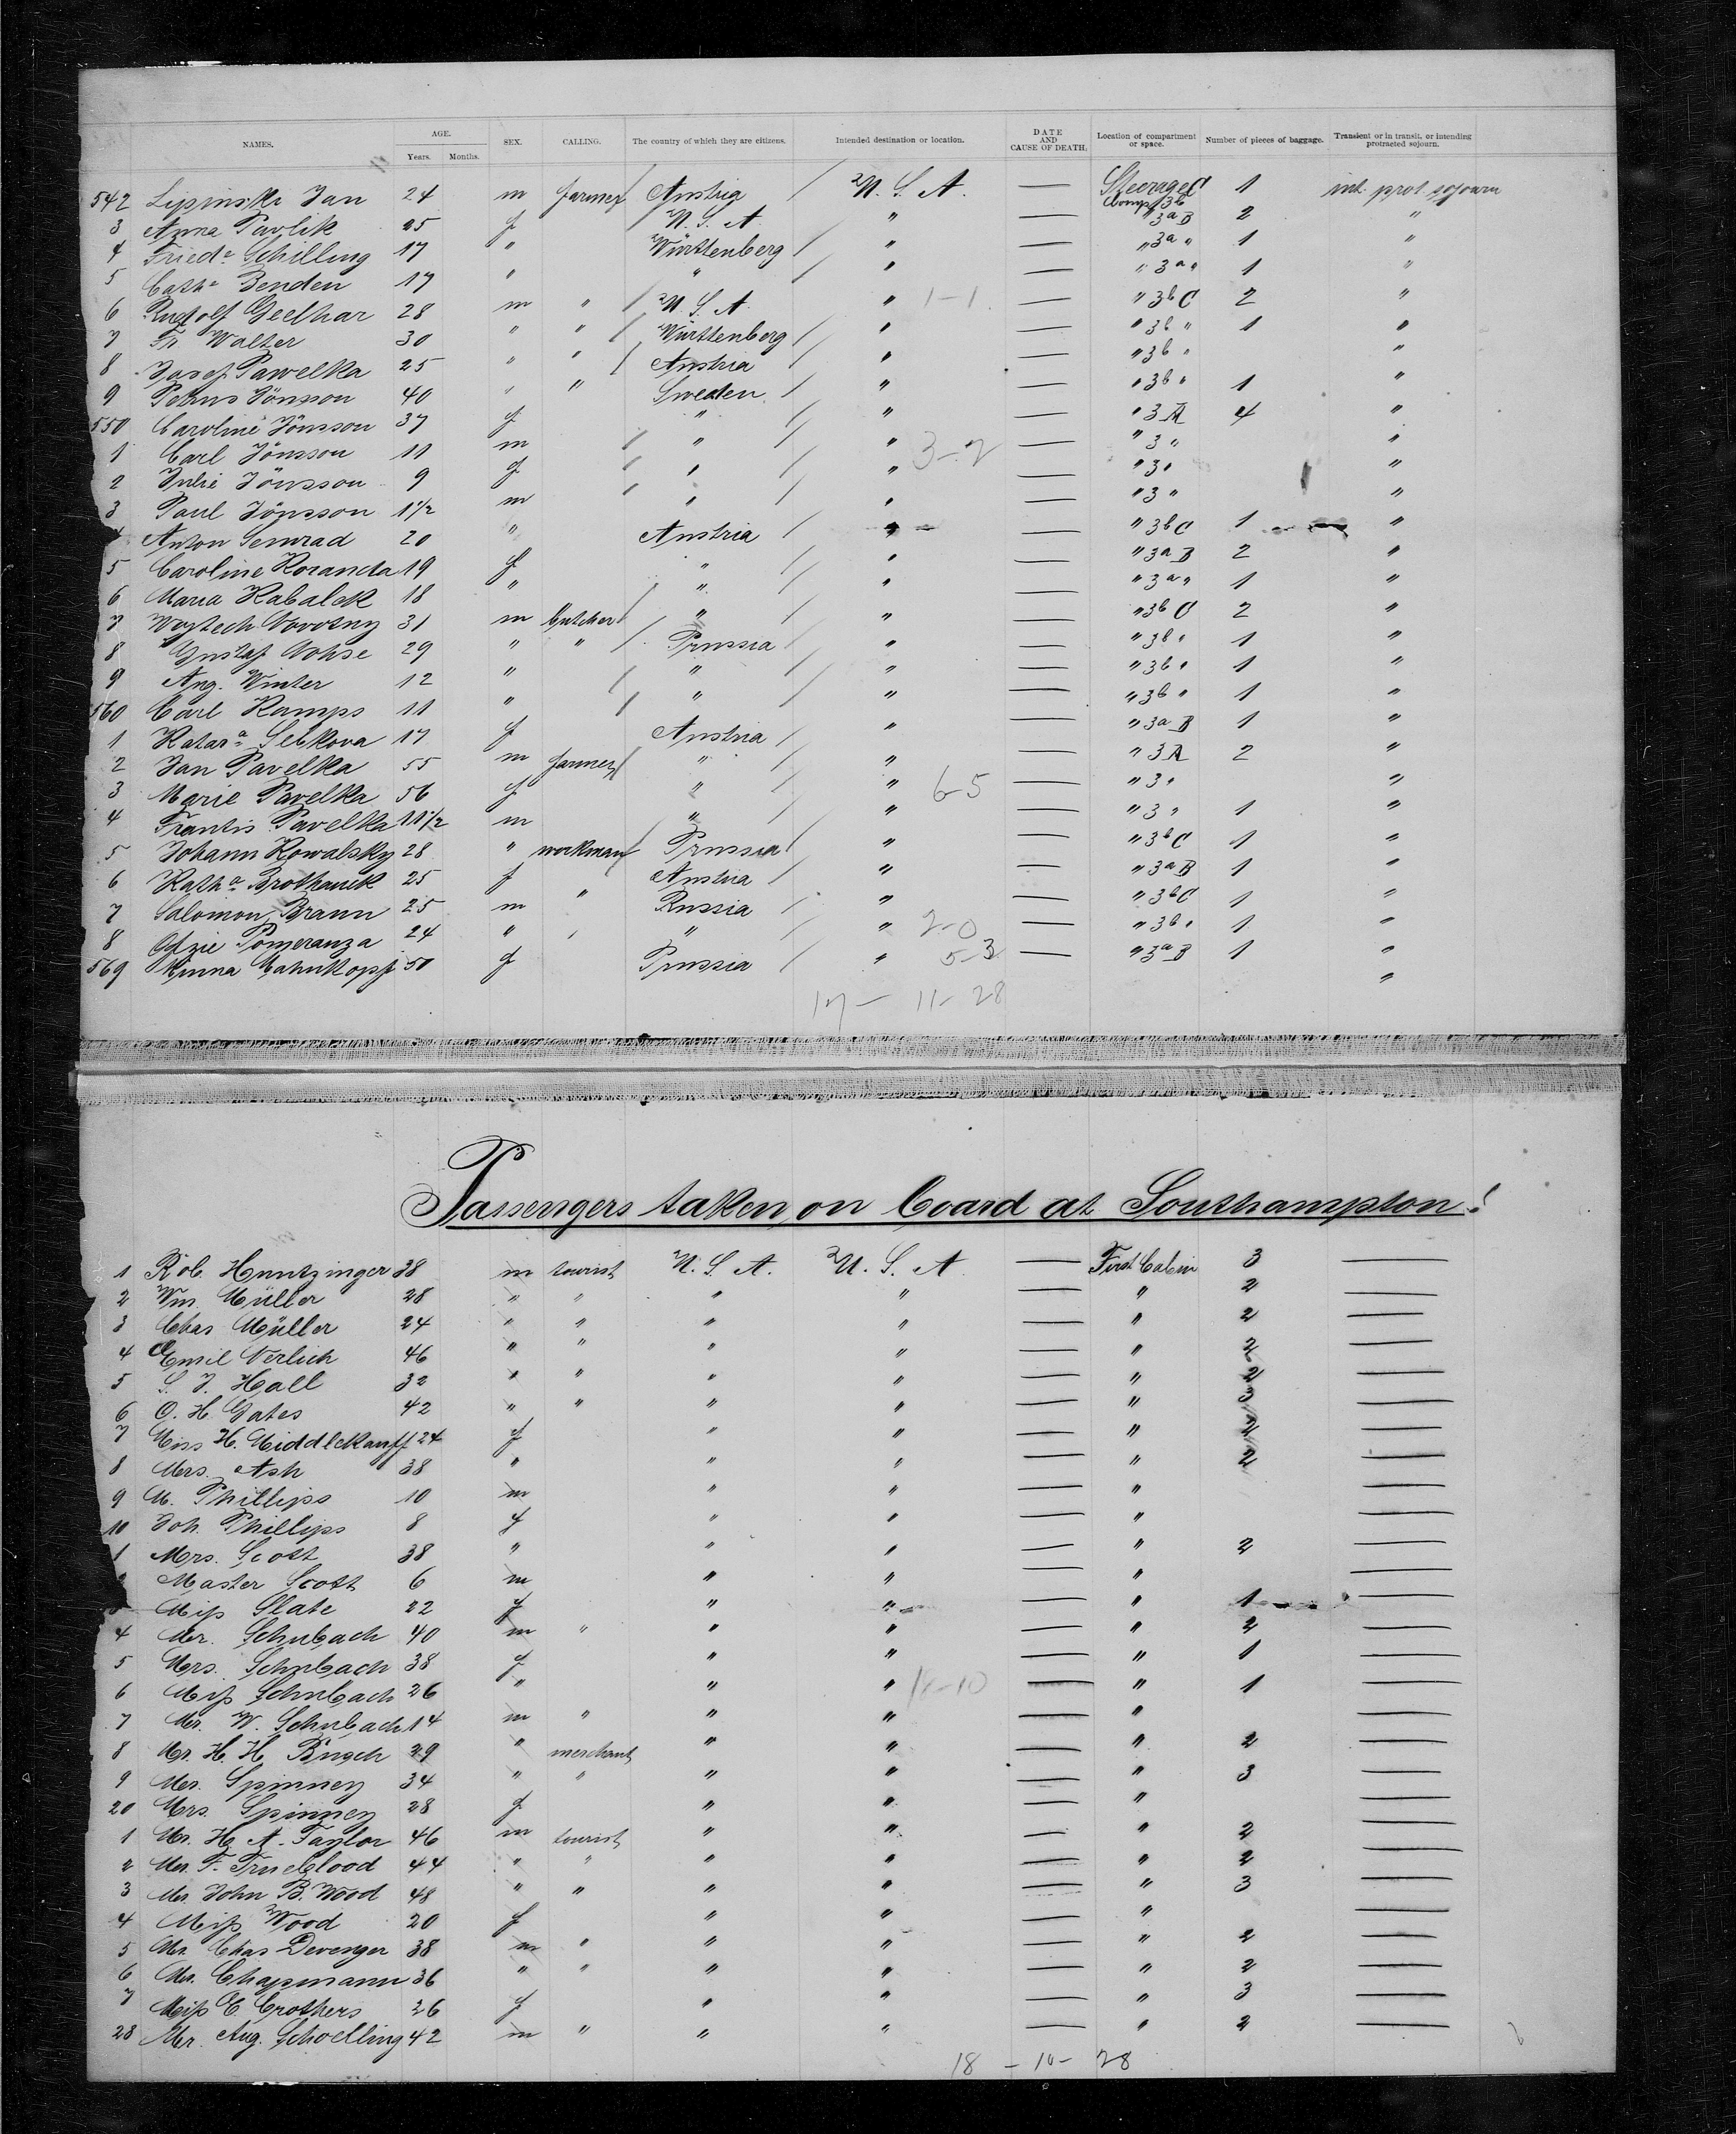 NAMES. AGE. Years. Months. SEX. CALLING. The country of which they are citizens. Intended destination or location. DATE AND CAUSE OF DEATH. Location of compartment or space. Number of pieces of baggage. Transient or in transit, or intending protracted sojourn.
542 Lipinski Jan 24 m farmer Austria U. S. A. — Steerage C Comp 3b 1 int. prot. sojourn
3 Anna Pavlik 25 f U. S. A " — " 3a B 2 "
4 Fried.a Schilling 17 " Württenberg " — " 3a " 1 "
5 Cath.a Benden 17 " " " — " 3a " 1 "
6 Rudolf Geelhar 28 m " U. S. A " 1-1 — " 3b C 2 "
7 Fr. Walter 30 " " Württenberg " — " 3b " 1 "
8 Josef Pawelka 25 " " Austria " — " 3b " "
9 Petrus Jönsson 40 " " Sweden " — " 3b " 1 "
550 Caroline Jönsson 37 f " " — " 3 A 4 "
1 Carl Jönsson 11 m " " 3-2 — " 3 " "
2 Julie Jönsson 9 f " " — " 3 " "
3 Paul Jönsson 1 1/2 m " " — " 3 " "
Anton Semrad 20 " Austria " — " 3b C 1 "
5 Caroline Koranda 19 f " " — " 3a B 2 "
6 Maria Kabalek 18 " " " — " 3a " 1 "
7 Woytech Novotny 31 m butcher " " — " 3b C 2 "
8 Gustaf Nohse 29 " " Prussia " — " 3b " 1 "
9 Aug. Winter 12 " " " — " 3b " 1 "
560 Carl Kamps 11 " " " — " 3b " 1 "
1 Katar.a Sebkova 17 f Austria " — " 3a B 1 "
2 Jan Pavelka 55 m farmer " " — " 3 A 2 "
3 Marie Pavelka 56 f " " 6-5 — " 3 " "
4 Frantis. Pavelka 11 1/2 m " " — " 3 " 1 "
5 Johann Kowalsky 28 " workman Prussia " — " 3b C 1 "
6 Kath.a Brothanek 25 f Austria " — " 3a B 1 "
7 Salomon Braun 25 m " Russia " — " 3b C 1 "
8 Pomeranza 24 " " " " 2-0 — " 3b " 1 "
569 Minna Hahnkopf 50 f Prussia " 5-3 — " 3a B 1 "
17 — 11 - 28
Passengers taken on board at Southampton!
1 Rob. Huntzinger 38 m tourist U. S. A. U. S. A — First Cabin 3 —
2 Wm. Müller 28 " " " " — " 2 —
3 Chas Müller 24 " " " " — " 2 —
4 Emil Verlich 46 " " " " — " 2 —
5 S. J. Hall 32 " " " " — " 2 —
6 O. H. Gates 42 " " " " — " 3 —
7 Miss H. Middlekauff 24 f " " — " 2 —
8 Mrs. Ash 38 " " " — " 2 —
9 M. Phillips 10 m " " — " —
10 Joh. Phillips 8 f " " — " —
1 Mrs. Scott 38 " " " — " 2 —
2 Master Scott 6 m " " — " —
3 Miss Slate 22 f " " — " 1 —
4 Mr. Schubach 40 m " " " — " 2 —
5 Mrs. Schubach 38 f " " — " 1 —
6 Miss Schubach 26 " " " 18-10 — " 1 —
7 Mr. W. Schubach 14 m " " " — " —
8 Mr. H. H. Busch 29 " merchant " " — " 2 —
9 Mr. Spinney 34 " " " " — " 3 —
20 Mrs. Spinney 28 f " " — " —
1 Mr. H. A. Taylor 46 m tourist " " — " 2 —
2 Mr. F. Trueblood 44 " " " " — " 2 —
3 Mr. John B. Wood 48 " " " " — " 3 —
4 Miss Wood 20 f " " — " —
5 Mr. Chas Devenger 38 m " " " — " 2 —
6 Mr. Chapmann 36 " " " " — " 2 —
7 Miss C. Crothers 26 f " " — " 3 —
28 Mr. Aug. Schoelling 42 m " " " — " 2 —
18 - 10 - 28